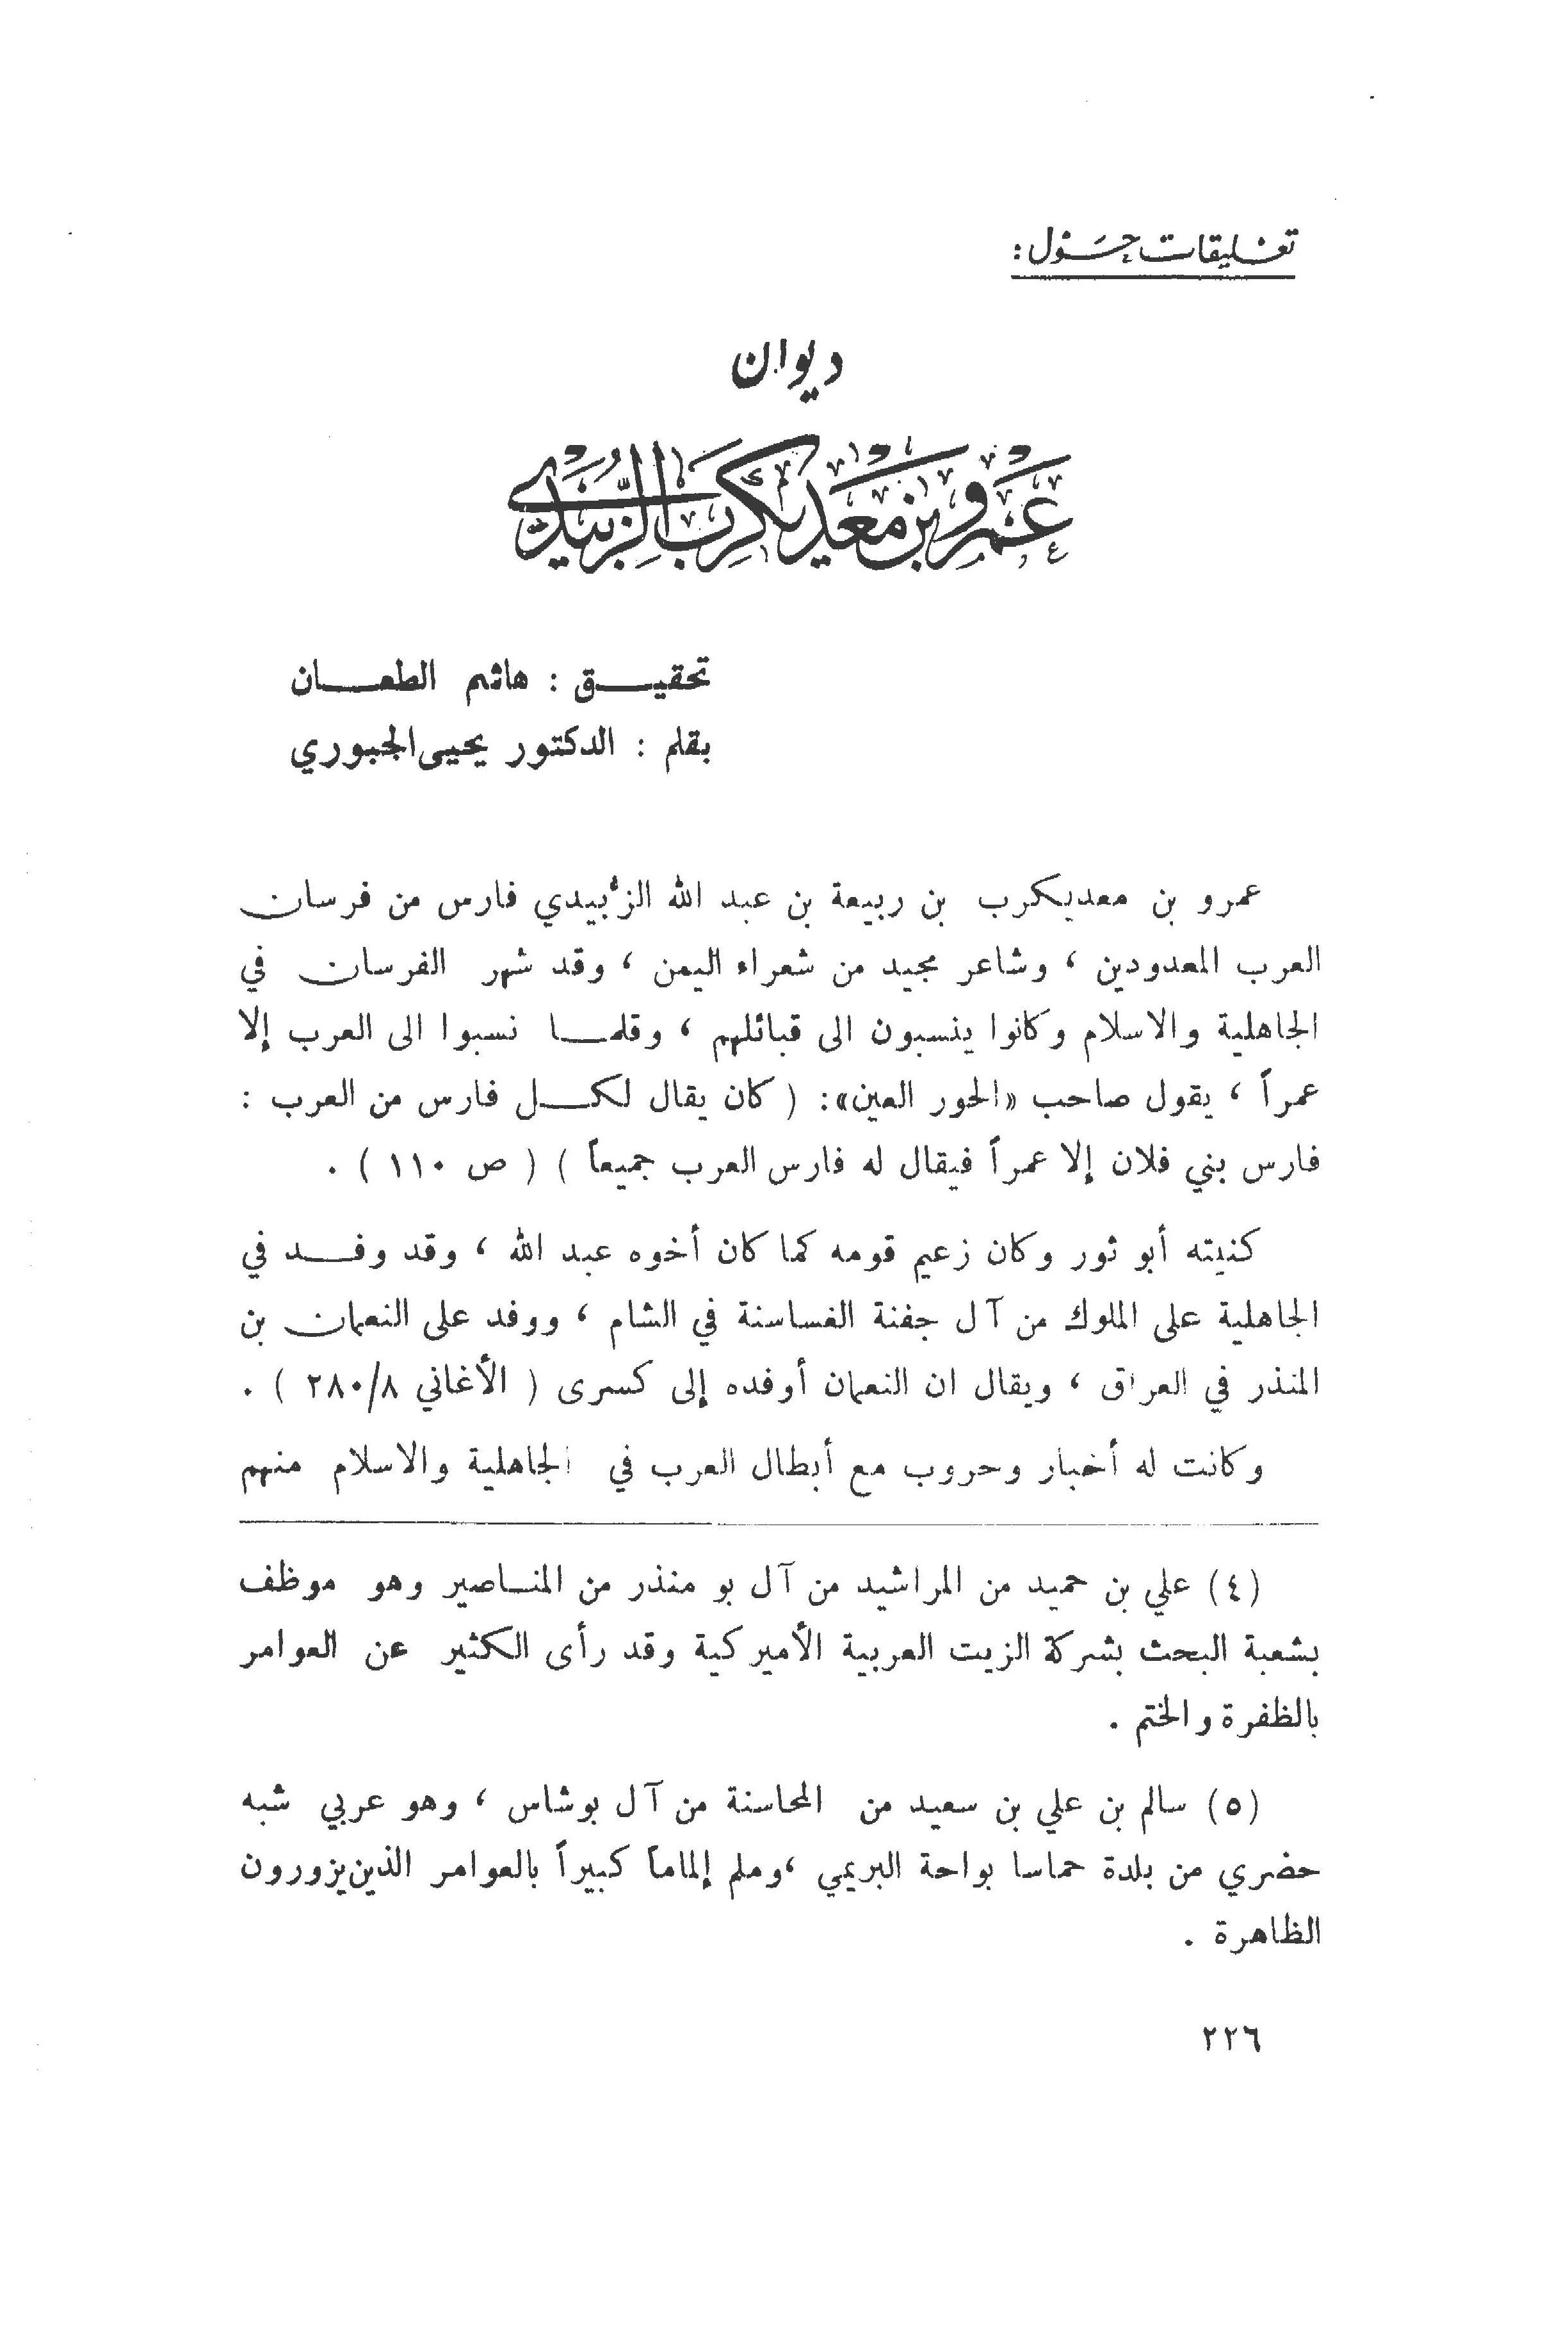 تعليقات حَوْل :
ديوان
عَمْرو بن مَعْدِيكَرِبَ الزُّبَيْدِي
تحقيـــق : هاشم الطعـــان
بقلم : الدكتور يحيى الجبوري
عمرو بن معديكرب بن ربيعة بن عبد الله الزُبيدي فارس من فرسان
العرب المعدودين ، وشاعر مجيد من شعراء اليمن ، وقد شهر الفرسان في
الجاهلية والاسلام وكانوا ينسبون الى قبائلهم ، وقلمــا نسبوا الى العرب إلا
عمراً ، يقول صاحب «الحور العين»: ( كان يقال لكــل فارس من العرب :
فارس بني فلان إلا عمراً فيقال له فارس العرب جميعاً ) ( ص ١١٠ ) .
كنيته أبو ثور وكان زعيم قومه كما كان أخوه عبد الله ، وقد وفــد في
الجاهلية على الملوك من آل جفنة الغساسنة في الشام ، ووفد على النعمان بن
المنذر في العراق ، ويقال ان النعمان أوفده إلى كسرى ( الأغاني ٢٨٠/٨ ) .
وكانت له أخبار وحروب مع أبطال العرب في الجاهلية والاسلام منهم
(٤) علي بن حميد من المراشيد من آل بو منذر من المنـاصير وهو موظف
بشعبة البحث بشركة الزيت العربية الأميركية وقد رأى الكثير عن العوامر
بالظفرة والختم .
(٥) سالم بن علي بن سعيد من المحاسنة من آل بوشاس ، وهو عربي شبه
حضري من بلدة حماسا بواحة البريمي ،وملم إلماماً كبيراً بالعوامر الذين يزورون
الظاهرة .
٢٢٦